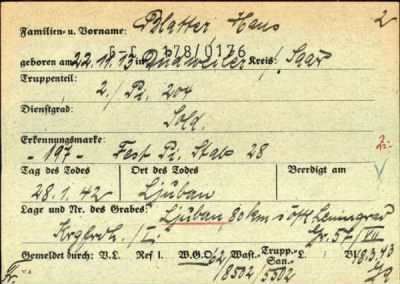 Familien- u. Vorname: Platter Hans 2
G-F 178/0176
geboren am 22.11.13 in Dudweiler Kreis: Saar
Truppenteil:
2./Pi. 204
Dienstgrad:
Sold.
Erkennungsmarke:
-197- Fest. Pi. Stab 28
Tag des Todes Ort des Todes Beerdigt am
28.1.42 Ljuban
Lage und Nr. des Grabes: Ljuban, 80 km s. östl. Leningrad
Gr. 57/VII
Gemeldet durch: V.L. Ref I. W.G.O. Wast.- Trupp.-L. BV
San.-
18502/5502